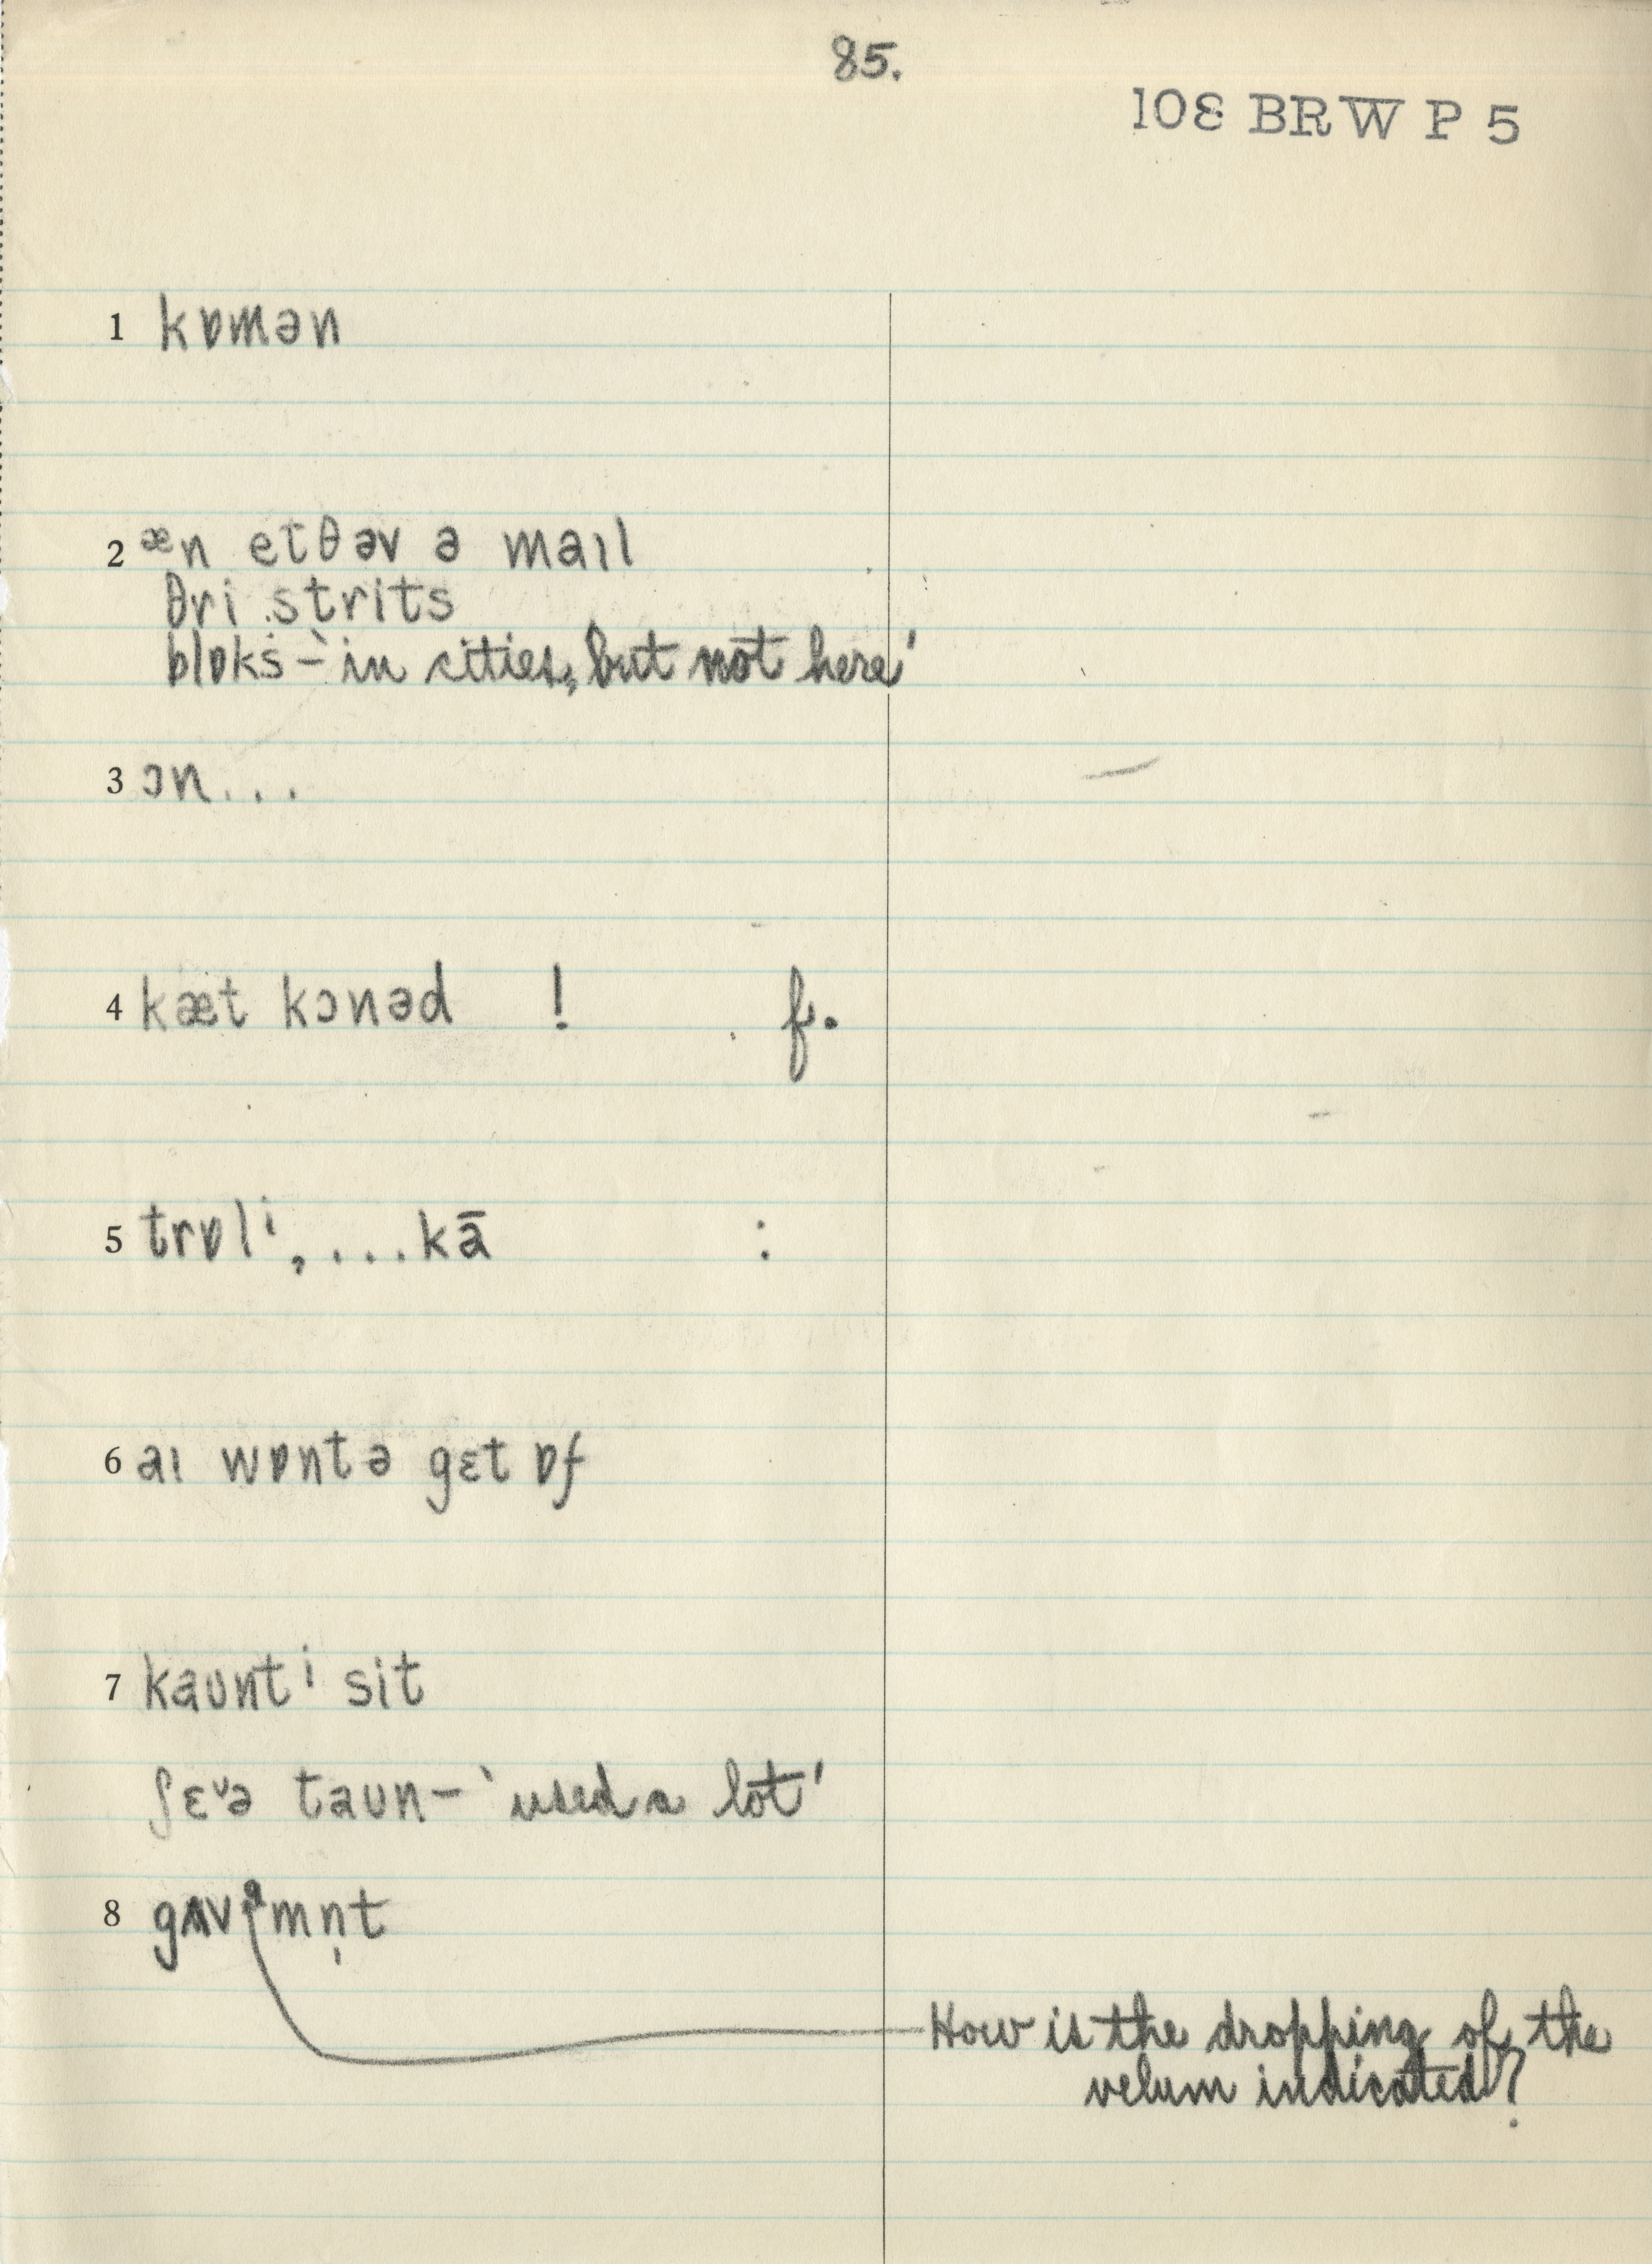 85.
108 BRW P 5
1 kɒmən
2 æn etθ əv ə maɪl
θri strits
blɒks – 'in cities, but not here'
3 ɔn...
4 kæt kɔnəd ! f.
5 trɒlⁱ, ...kā :
6 aɪ wɒntə gɛt ɒf
7 kaʊntⁱ sit
ʃɛᵛə taʊn – 'used a lot'
8 gʌvᵊmn̩t
How is the dropping of the
velum indicated?